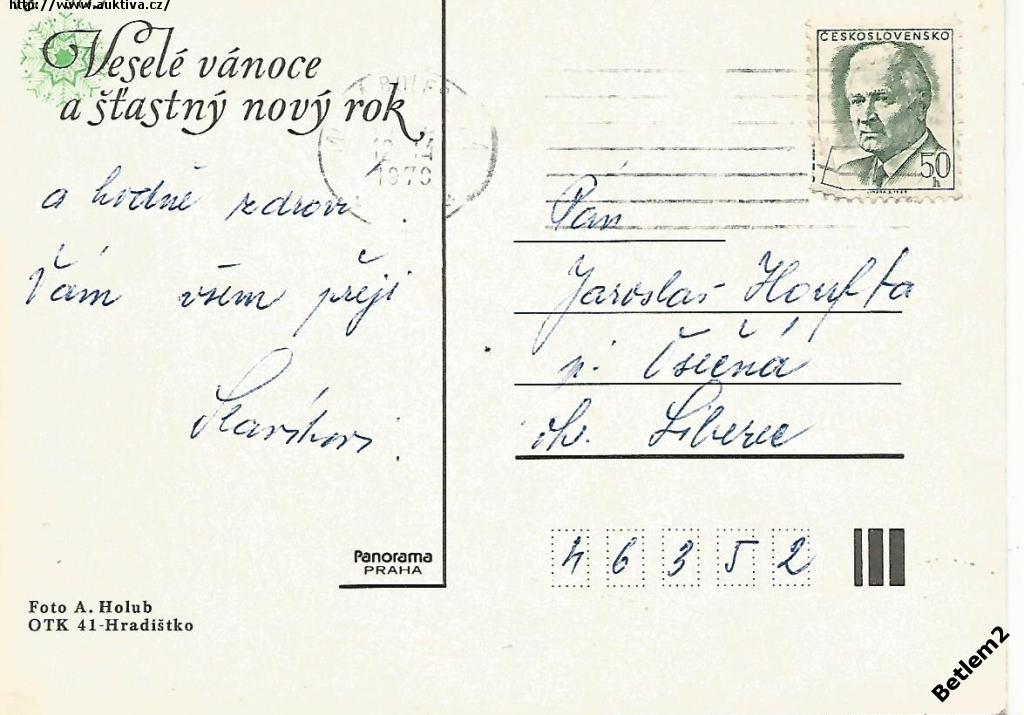 http://www.auktiva.cz/
Veselé vánoce
a šťastný nový rok
a hodně zdraví
Vám všem přejí
Slavíkovi.
Panorama
PRAHA
Foto A. Holub
OTK 41-Hradištko
1979
ČESKOSLOVENSKO
50
h
Pan
Jaroslav Houfta
p. Osečná
ok. Liberec
46352
Betlem2